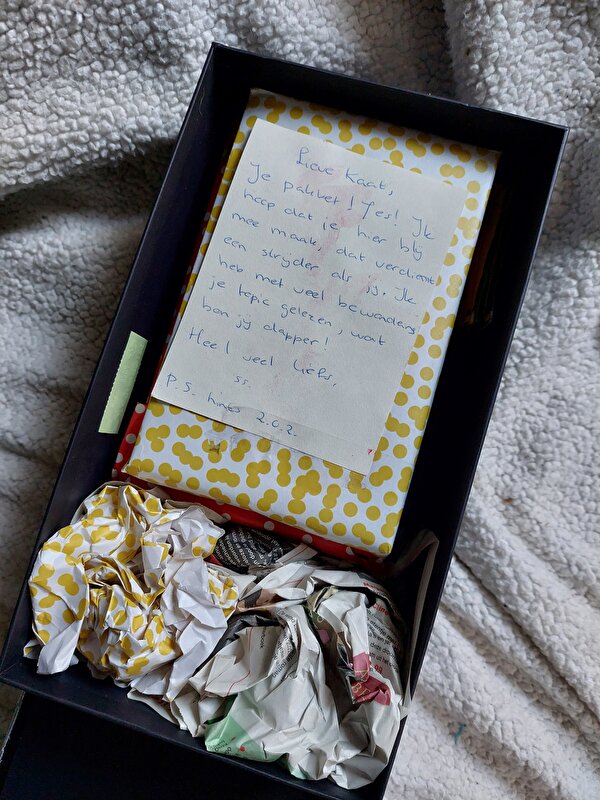 Lieve Kaat,
Je pakket! Yes! Ik
hoop dat ik je hier blij
mee maak, dat verdient
een strijder als jij. Ik
heb met veel bewondering
je topic gelezen, wat
ben jij dapper!
Heel veel liefs,
ss.
P.S. hints z.o.z.